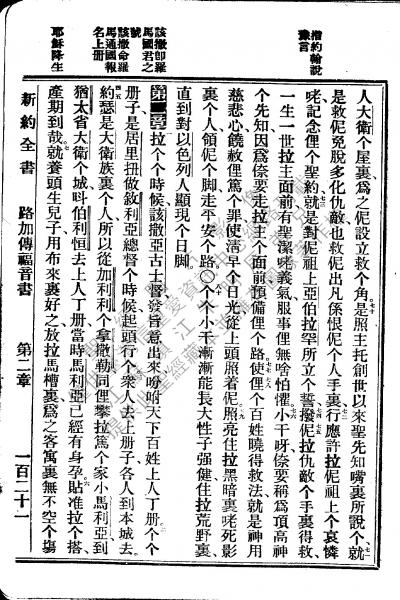 指約翰說
豫言
人大衛个屋裏爲之伲設立救个角是照主托創世以來聖先知嘴裏所說个就
是救伲免脫多化仇敵也救伲出凡係恨伲个人手裏行應許拉伲祖上个哀憐
咾記念俚个聖約就是對伲祖上亞伯拉罕所立个誓撥伲拉仇敵个手裏得救
一生一世拉主面前有聖潔咾義氣服事俚無啥怕懼小干呀倷要稱爲頂高神
个先知因爲倷要走拉主个面前預備俚个路使俚个百姓曉得救法就是神用
慈悲心饒赦俚篤个罪使淸早个日光從上頭照着伲照亮住拉黑暗裏咾死影
裏个人領伲个脚走平安个路〇个个小干漸漸能長大性子强健住拉荒野裏
直到對以色列人顯現个日脚
該撒卽羅
馬國君之
號
第二章拉个个時候該撒亞古士督發旨意出來吩咐天下百姓上人丁册个个
該撒命羅
馬通國報
名上册
册子是居里扭做敘利亞總督个時候起頭行个衆人去上册子各人到本城去
約瑟是大衛族裏个人所以從加利利个拿撒勒同俚攀拉篤个家小馬利亞到
猶太省大衛个城呌伯利恒去上人丁册當時馬利亞已經有身孕貼准拉个搭
耶穌降生
產期到哉就養頭生兒子用布來裏好之放拉馬槽裏爲之客寓裏無不空个塲
新約全書 路加傳福音書 第二章 一百二十一